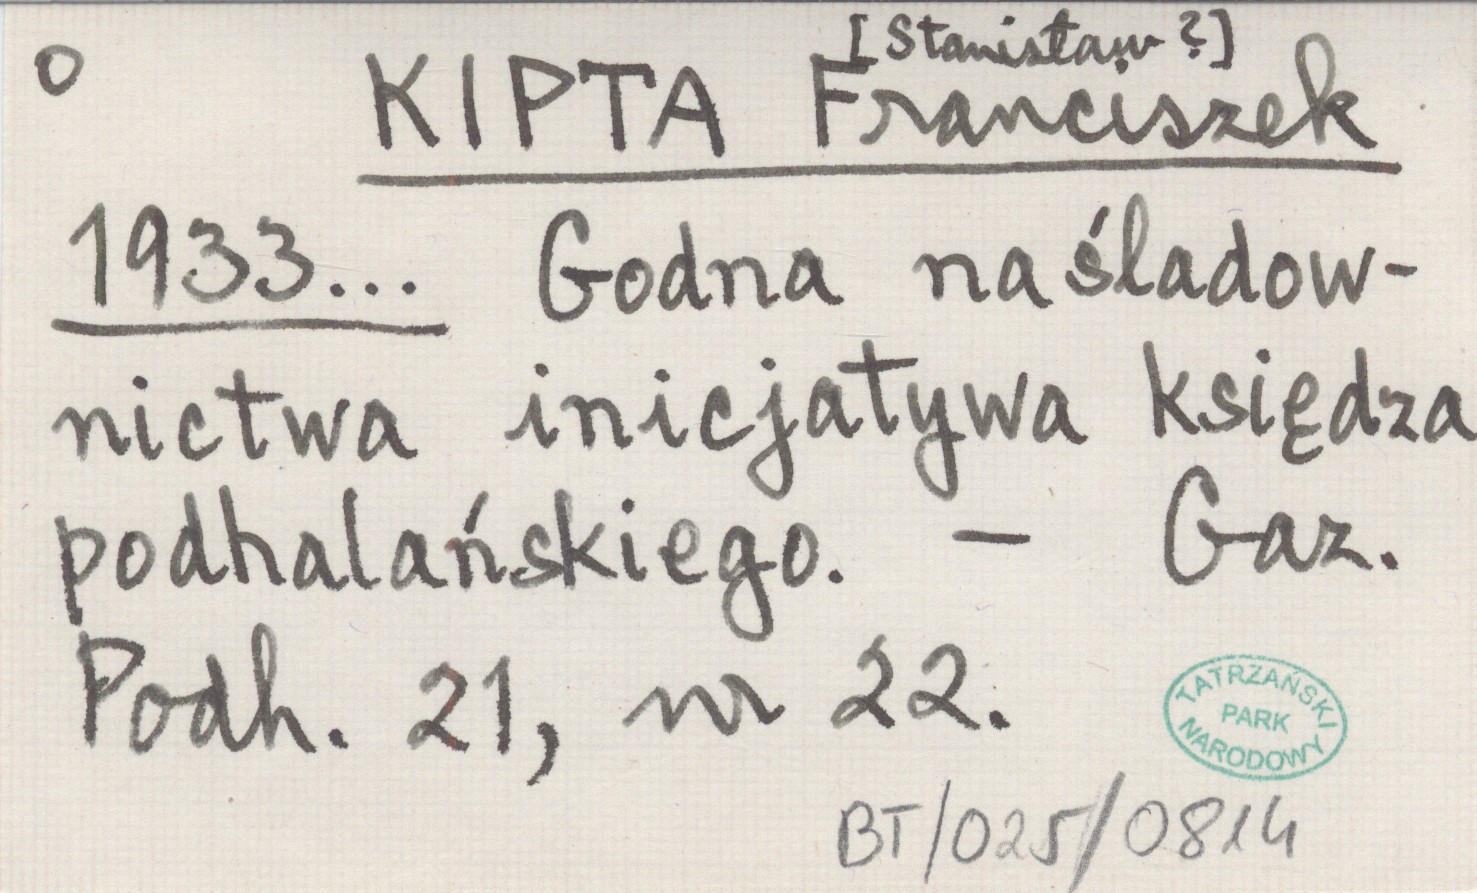 O
[Stanisław?]
KIPTA Franciszek
1933... Godna naśladow-
nictwa inicjatywa księdza
podhalańskiego. – Gaz.
Podh. 21, nr 22.
TATRZAŃSKI
PARK
NARODOWY
BT/025/0814